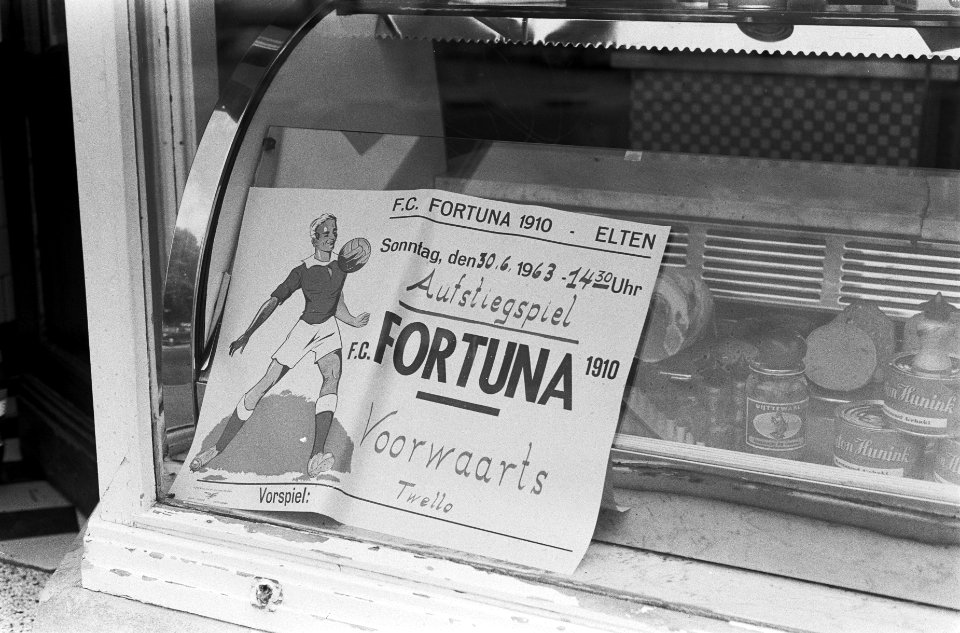 F.C. FORTUNA 1910 - ELTEN
Sonntag, den 30.6.1963 - 14³⁰ Uhr
Aufstiegspiel
F.C. FORTUNA 1910
Voorwaarts
Twello
Vorspiel:
den Hunink
den Hunink